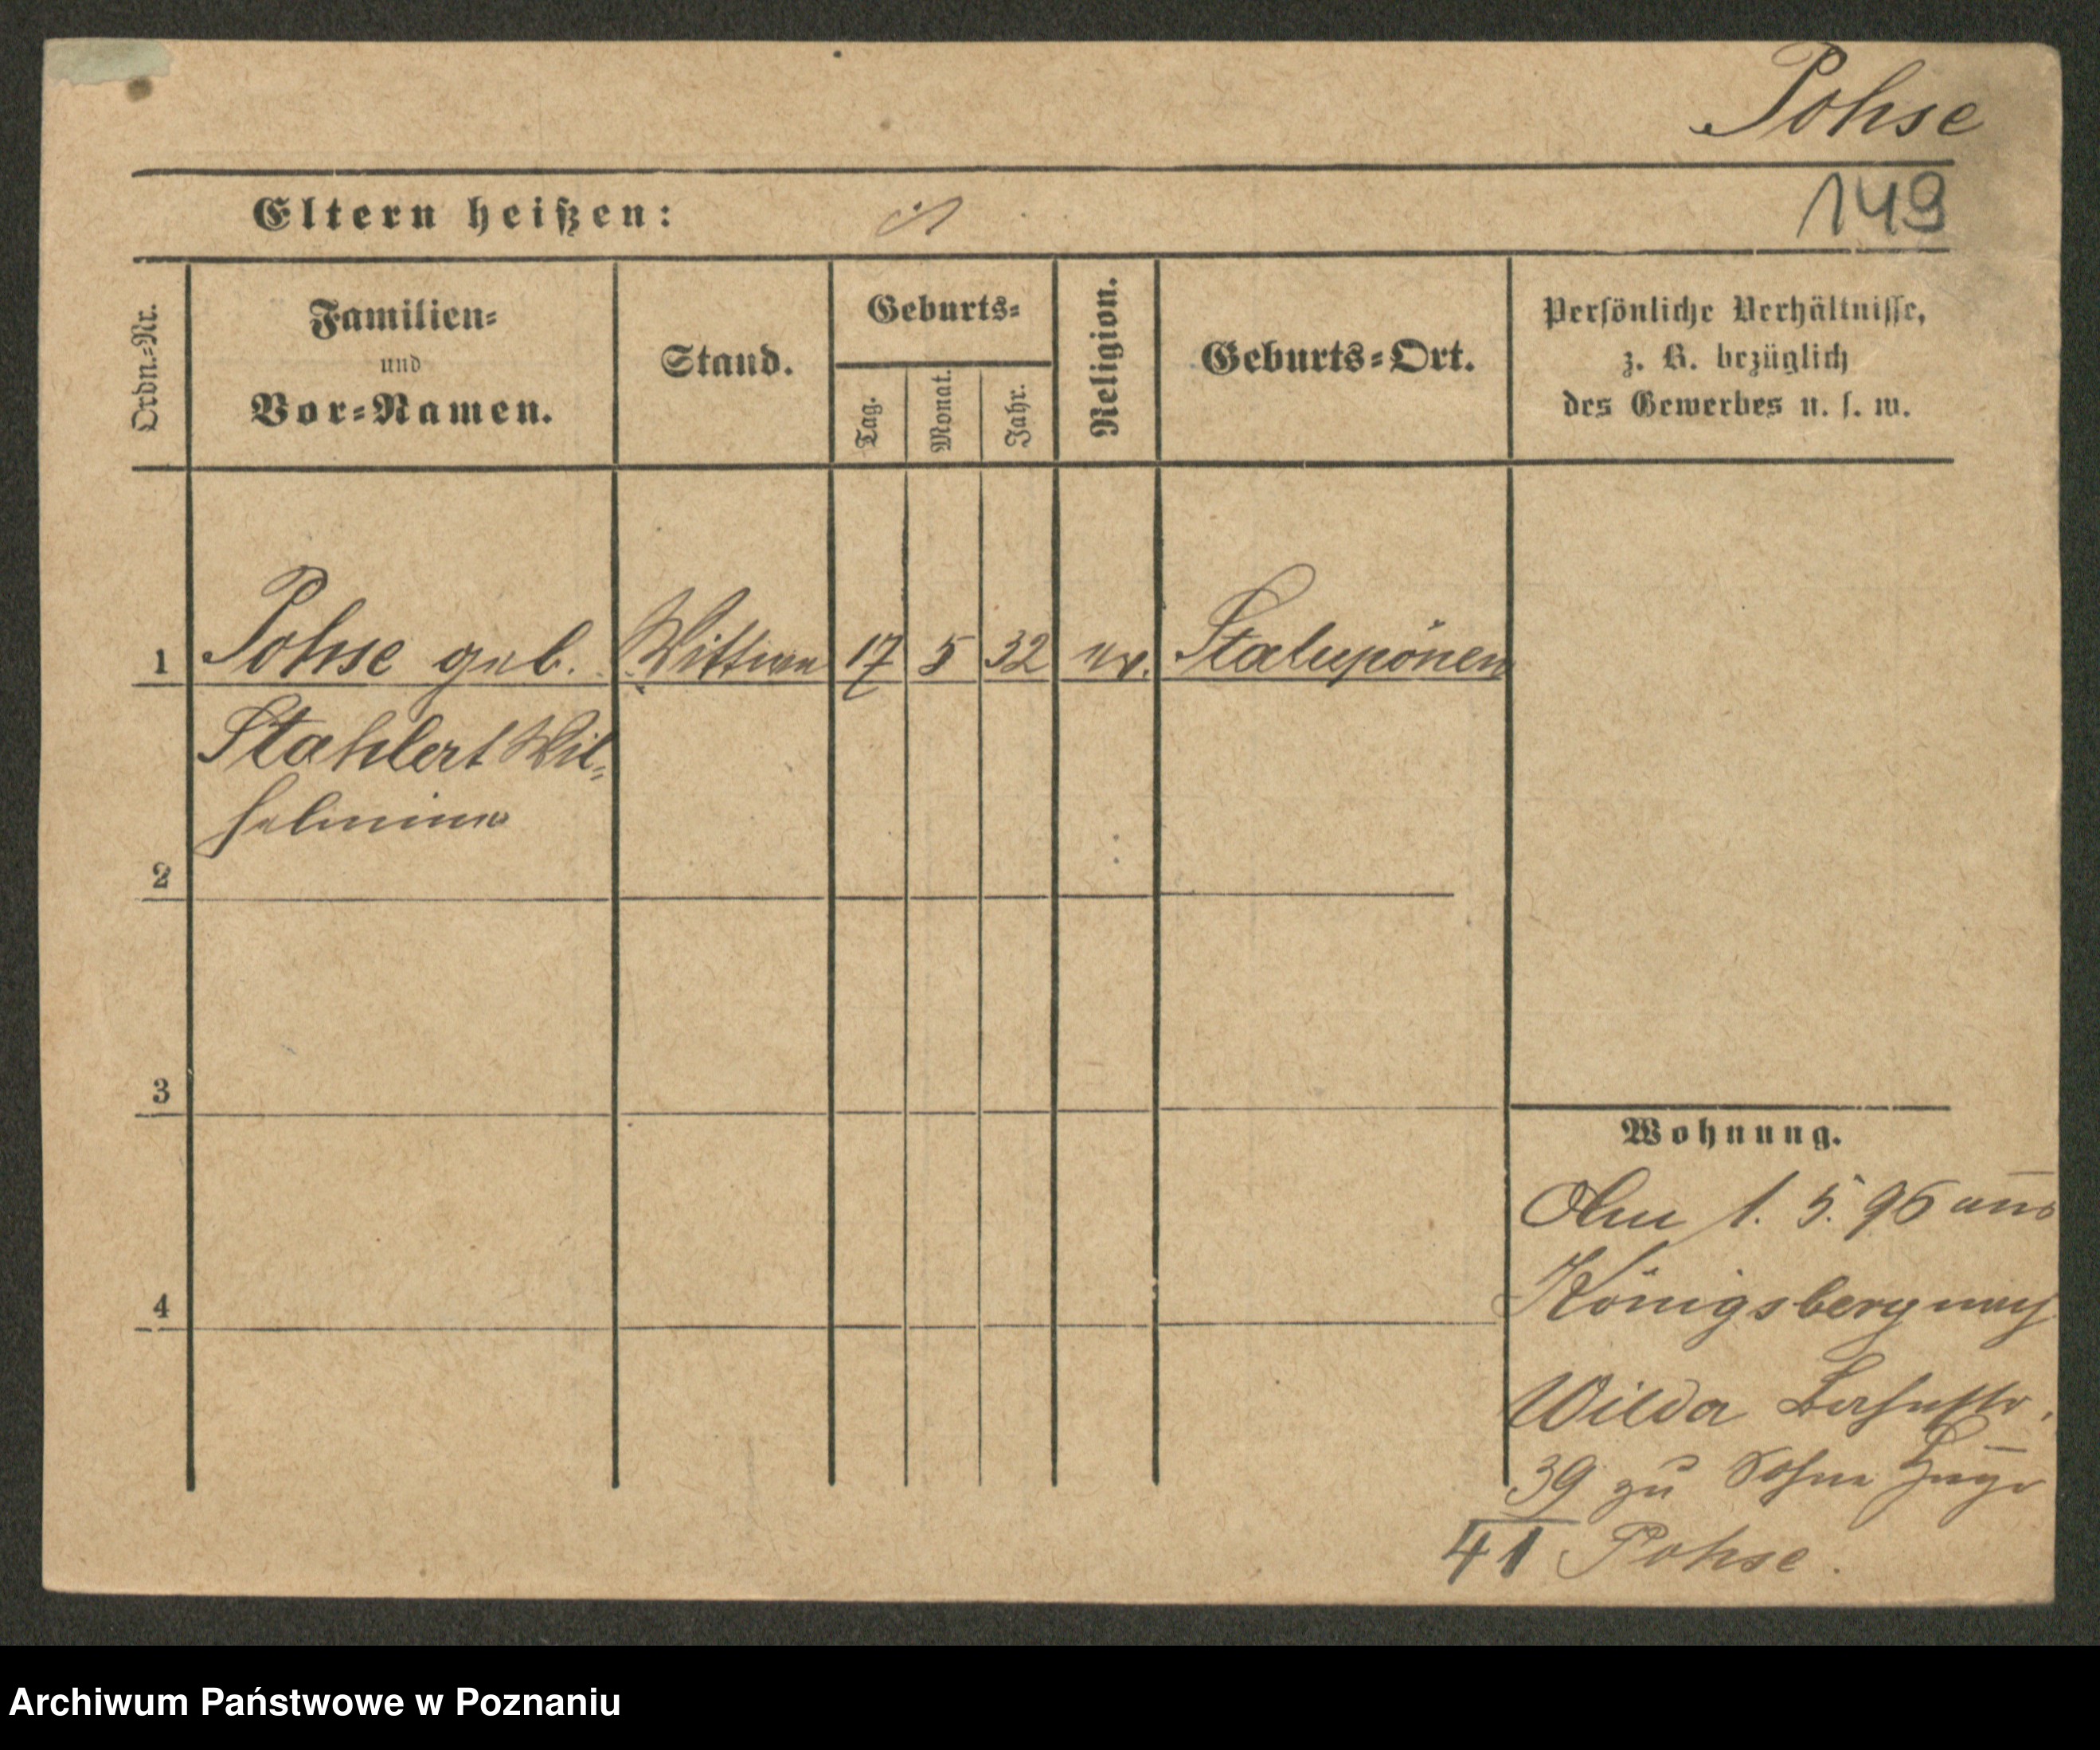 Pohse
149
Eltern heißen:
Ordn.-Nr.
Familien-
und
Vor-Namen.
Stand.
Geburts-
Tag.
Monat.
Jahr.
Religion.
Geburts-Ort.
Persönliche Verhältnisse,
z. B. bezüglich
des Gewerbes u. s. w.
1 Pohse geb. Wittwe 17 5 32 ev. Stalupönen
Stahlert Wil-
helmine
2
3
4
Wohnung.
Am 1. 5. 96 aus
Königsberg nach
Wilda Bahnstr.
39 zu Sohne Hugo
41 Pohse.
Archiwum Państwowe w Poznaniu